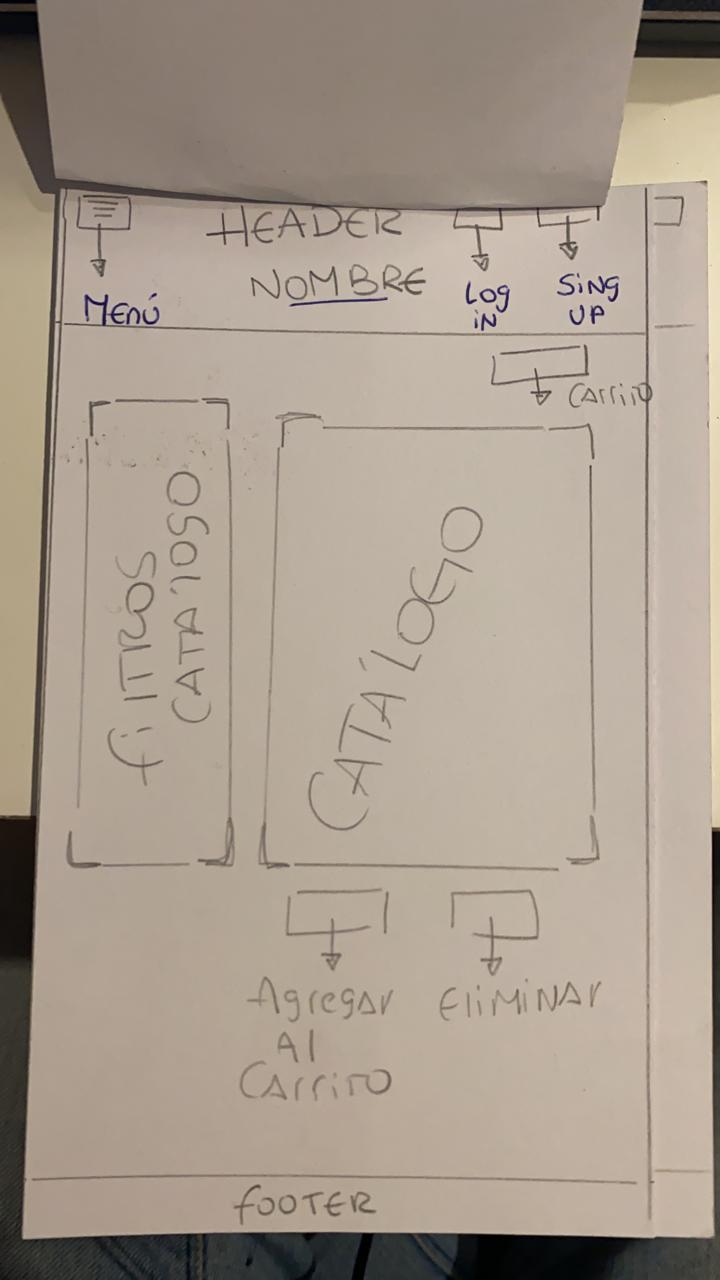 HEADER
NOMBRE
MENÚ
LOG
iN
SiNG
UP
CArriTO
filTROS
CATAlOgO
CATÁLOGO
Agregar
Al
CArriTO
EliMiNAr
fOOTER